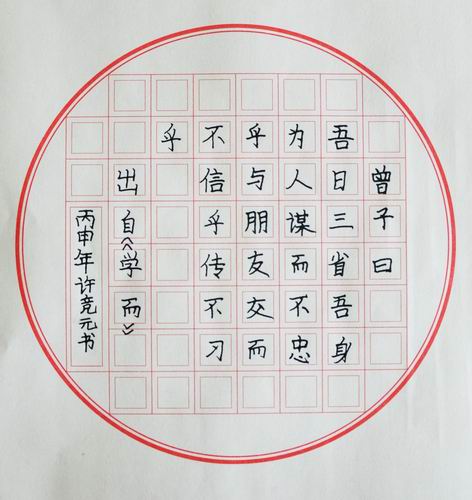 曾子曰
吾日三省吾身
为人谋而不忠
乎与朋友交而
不信乎传不习
乎
出自《学而》
丙申年许竞元书